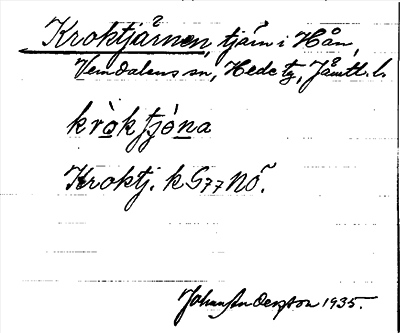 Kroktjärnen, tjärn i Hån,
Vemdalens sn, Hede tg, Jämtl. l.
kròktjòna
Kroktj. k G77 NÖ.
Johan Anderzson 1935.